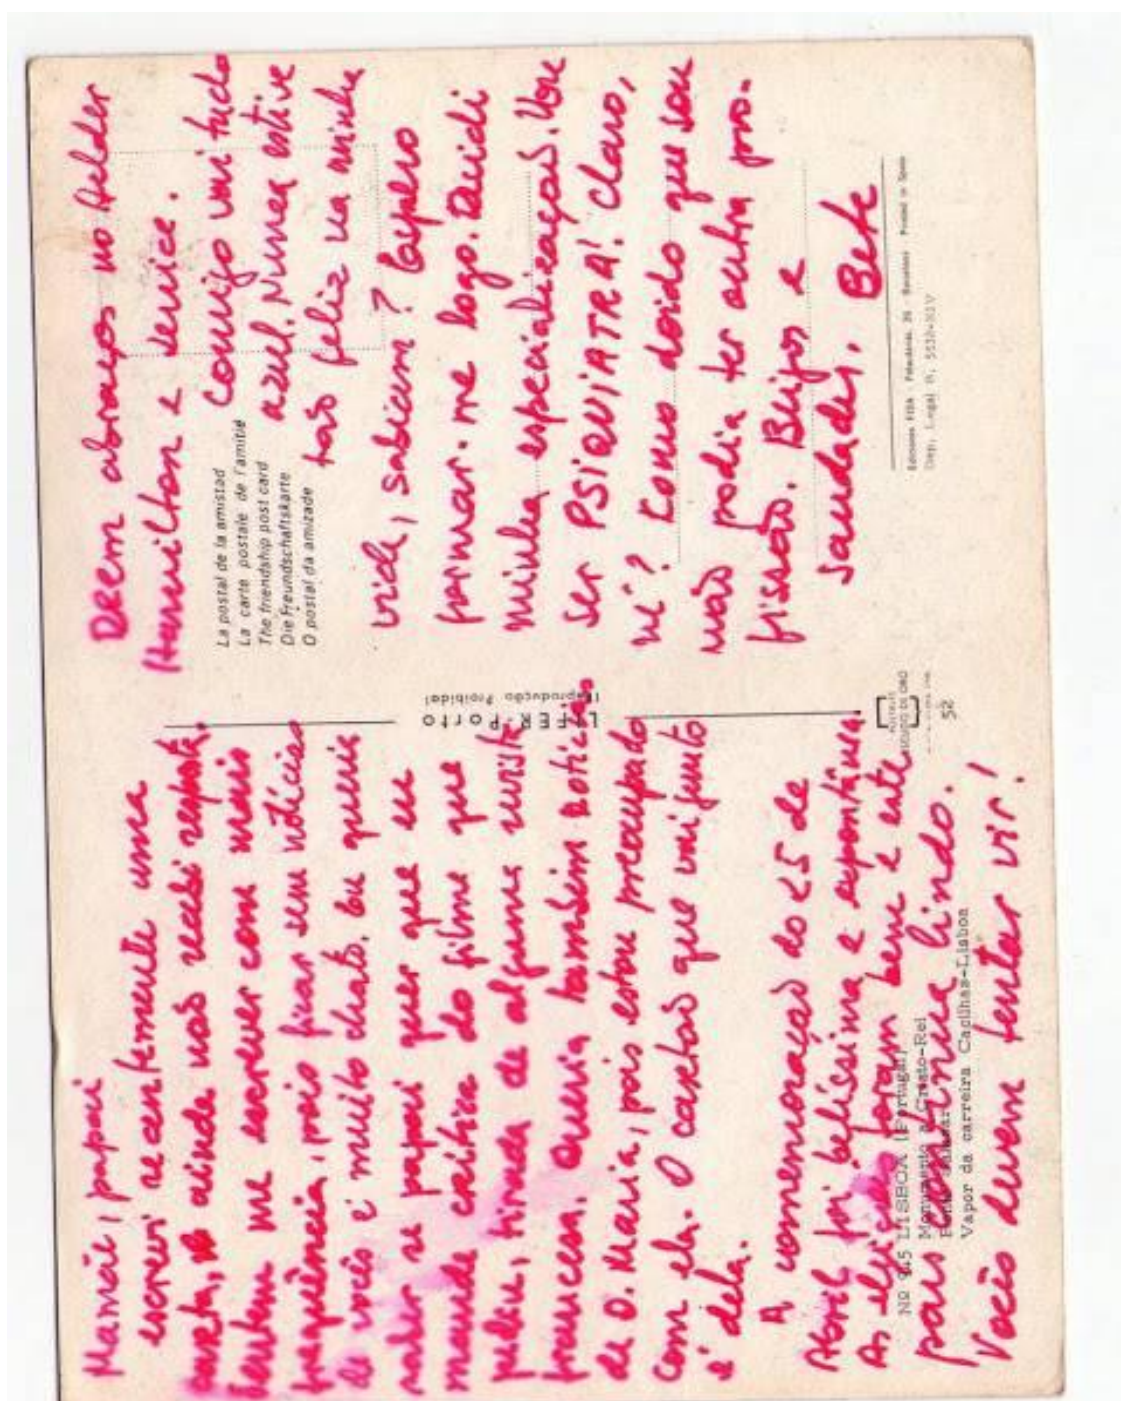 Mamãe, papai
escrevi recentemente uma
carta, e ainda não recebi resposta.
Tentem me escrever com mais
frequência, pois ficar sem notícias
de vocês é muito chato. Eu queria
saber se papai quer que eu
mande crítica do filme que
pediu, tirada de alguma revista
francesa. Queria também notícias
de D. Maria, pois estou preocupado
com ela. O cartão que vai junto
é dela.
A comemoração do 25 de
Abril foi belíssima e espontânea.
As eleições foram bem e este
país continua lindo.
Vocês devem tentar vir!
Nº 945 LISBOA (Portugal)
Monumento a Cristo-Rei
Vapor da carreira Cacilhas-Lisboa
LIFER-Porto
(Reprodução Proibida)
Deem abraços no Helder
Hamilton e Denice.
Comigo vai tudo
azul. Nunca estive
tão feliz na minha
vida, sabiam? Espero
formar-me logo. Decidi
minha especialização. Vou
ser PSIQUIATRA! Claro,
né? Como doido que sou
não podia ter outra pro-
fissão. Beijos e
saudades, Bete
La postal de la amistad
La carte postale de l'amitié
The friendship post card
Die Freundschaftskarte
O postal da amizade
52
Ediciones FISA Palaudarias, 26 Barcelona Printed in Spain
Dep. Legal B. 5538-XIV